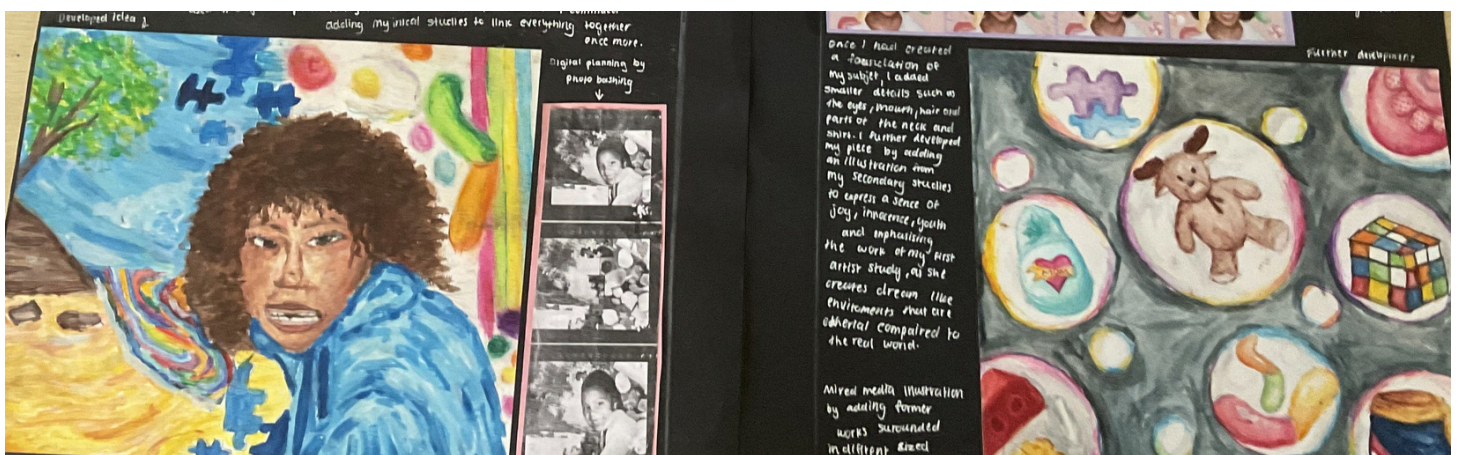 Developed idea
adding my inical studies to link everything together
once more.
Digital planning by
photo bashing
once I had created
a foundation of
my subjet, I added
smaller details such as
the eyes, mouth, hair and
parts of the neck and
shirt. I further developed
my piece by adding
an illustration from
my secondary studies
to express a sence of
joy, innocence, youth
and emphasising
the work of my first
artist study, as she
creates dream like
enviroments that are
etherial compaired to
the real world.
Mixed media illustration
by adding former
works surounded
in different sized
Further development